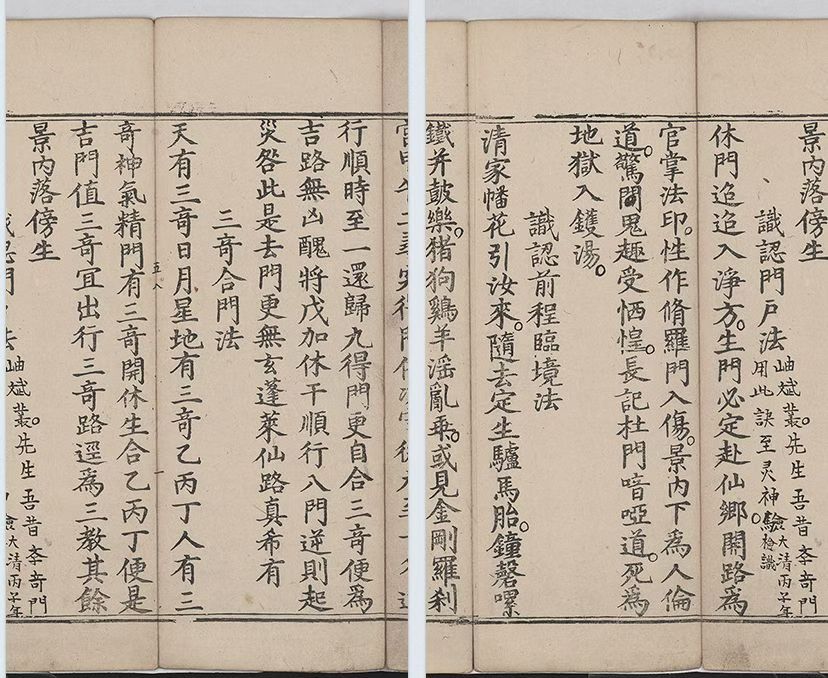 行順時至一還歸九得門更自合三竒便爲
吉路無凶醜將戊加休干順行八門逆則起
災咎此是去門更無玄蓬萊仙路真希有
三竒合門法
天有三竒日月星地有三竒乙丙丁人有三
五八
竒神氣精門有三竒開休生合乙丙丁便是
吉門值三竒宜出行三竒路逕爲三教其餘
景内落傍生
岫斌叢。先生吾昔李奇門
大清丙子年
景内落傍生
識認門戶法
岫斌叢。先生吾昔李奇門
用此訣至灵神驗
大清丙子年
檢識
休門迢迢入淨方。生門必定赴仙鄉。開路爲
官掌法印。性作脩羅門入傷。景内下爲人倫
道。驚聞鬼趣受恓惶。長記杜門喑啞道。死爲
地獄入鑊湯。
識認前程臨境法
清家幡花引汝來。隨去定生驢馬胎。鐘磬螺
鐵并鼓樂。猪狗鷄羊滛亂乘。或見金剛羅刹